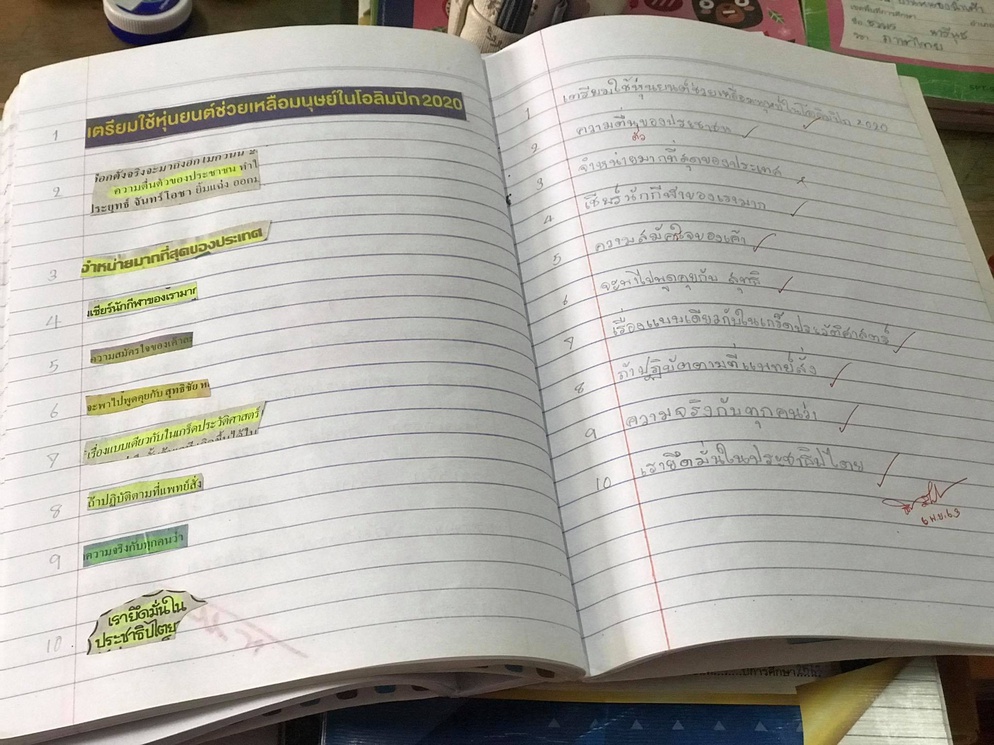 ภาษาไทย
1 เตรียมใช้หุ่นยนต์ช่วยเหลือมนุษย์ในโอลิมปิก 2020
2 ความตื่นตัวของประชาชน
ประยุทธ์ จันทร์โอชา ยิ้มแฉ่ง ออกม
3 จำหน่ายมากที่สุดของประเทศ
4 เชียร์นักกีฬาของเรามาก
5 ความสมัครใจของเค้า
6 จะพาไปพูดคุยกับ สุทธิชัย ห
7 เรื่องแบบเดียวกับในเกร็ดประวัติศาสตร์
8 ถ้าปฏิบัติตามที่แพทย์สั่ง
9 ความจริงกับทุกคนว่า
10 เรายึดมั่นใน
ประชาธิปไตย
1 เตรียมใช้หุ่นยนต์ช่วยเหลือมนุษย์ในโอลิมปิก 2020
2 ความตื่นของประชาชน
ตัว
3 จำหน่ายมากที่สุดของประเทศ
4 เชียร์นักกีฬาของเรามาก
5 ความสมัคใจของเค้า
6 จะพาไปพูดคุยกับ สุทธิ
7 เรื่องแบบเดียวกับในเกร็ดประวัติศาสตร์
8 ถ้าปฏิบัตตามที่แพทย์สั่ง
9 ความจริงกับทุกคนว่า
10 เรายึดมั่นในประชาธิปไตย
6 พ.ย. 63